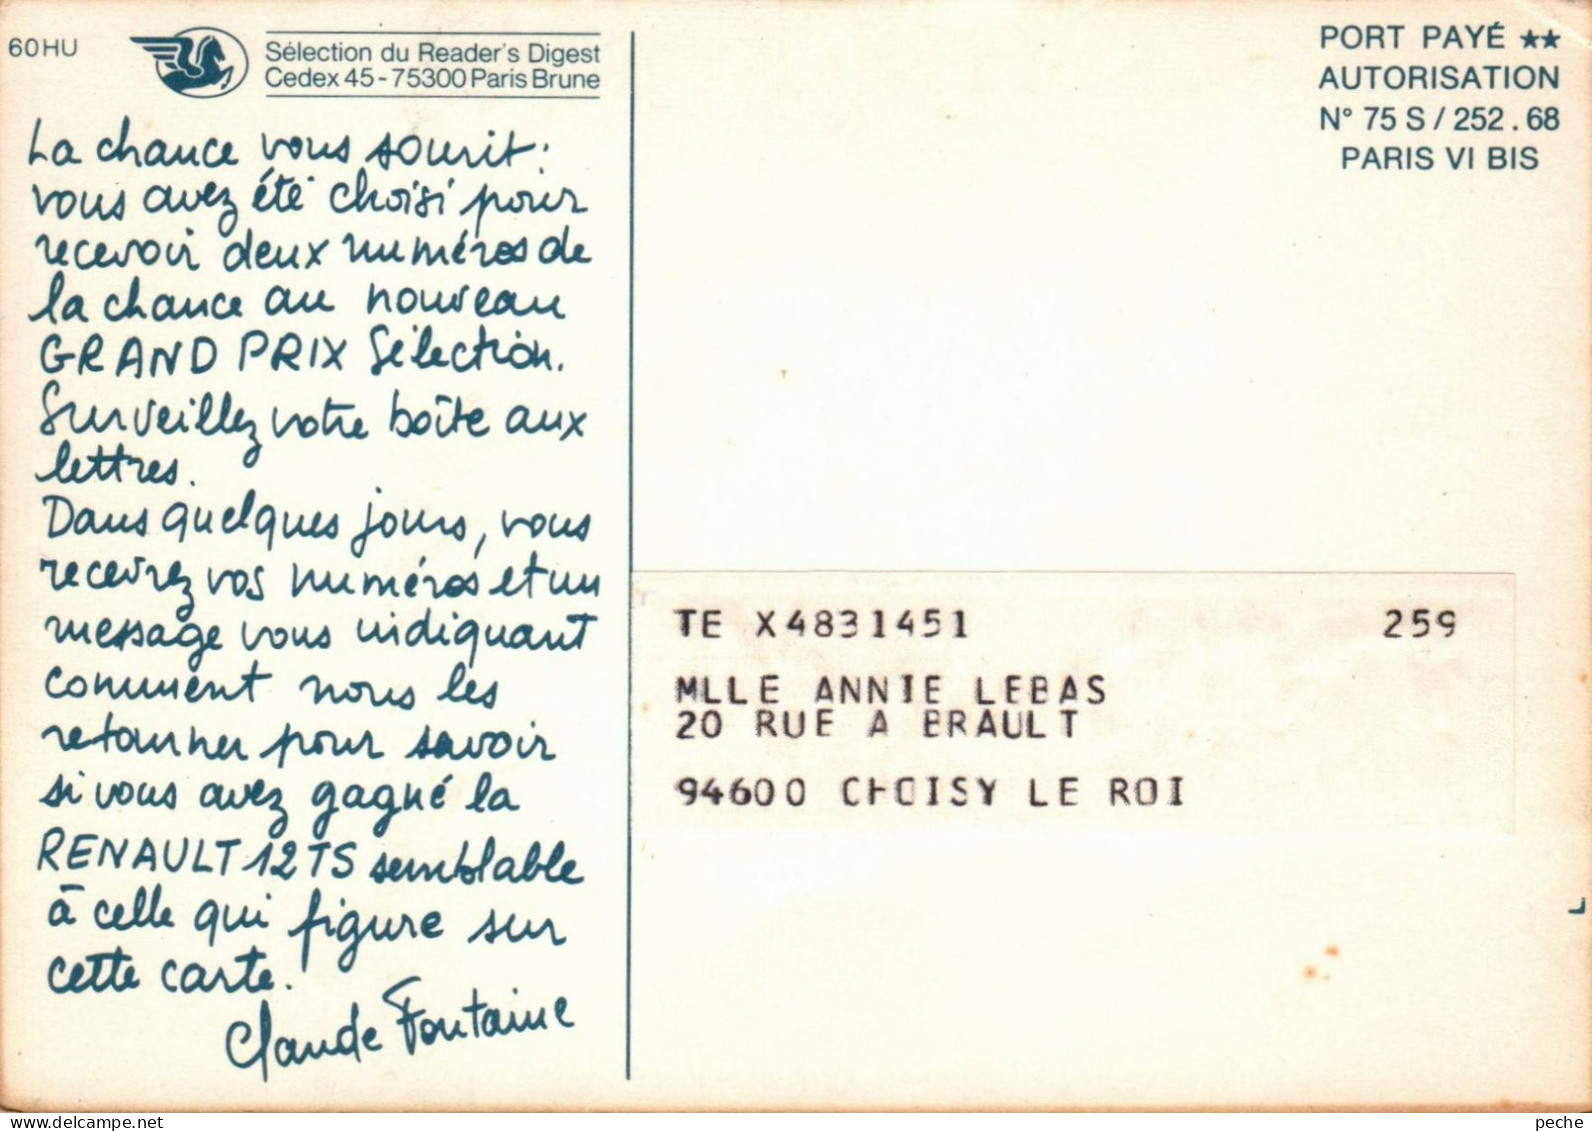 60HU
Sélection du Reader's Digest
Cedex 45-75300 Paris Brune
PORT PAYÉ ★★
AUTORISATION
N° 75 S / 252.68
PARIS VI BIS
La chance vous sourit:
vous avez été choisi pour
recevoir deux numéros de
la chance au nouveau
GRAND PRIX Sélection.
Surveillez votre boîte aux
lettres.
Dans quelques jours, vous
recevrez vos numéros et un
message vous indiquant
comment nous les
retourner pour savoir
si vous avez gagné la
RENAULT 12 TS semblable
à celle qui figure sur
cette carte.
Claude Fontaine
TE X4831451 259
MLLE ANNIE LEBAS
20 RUE A BRAULT
94600 CHOISY LE ROI
peche